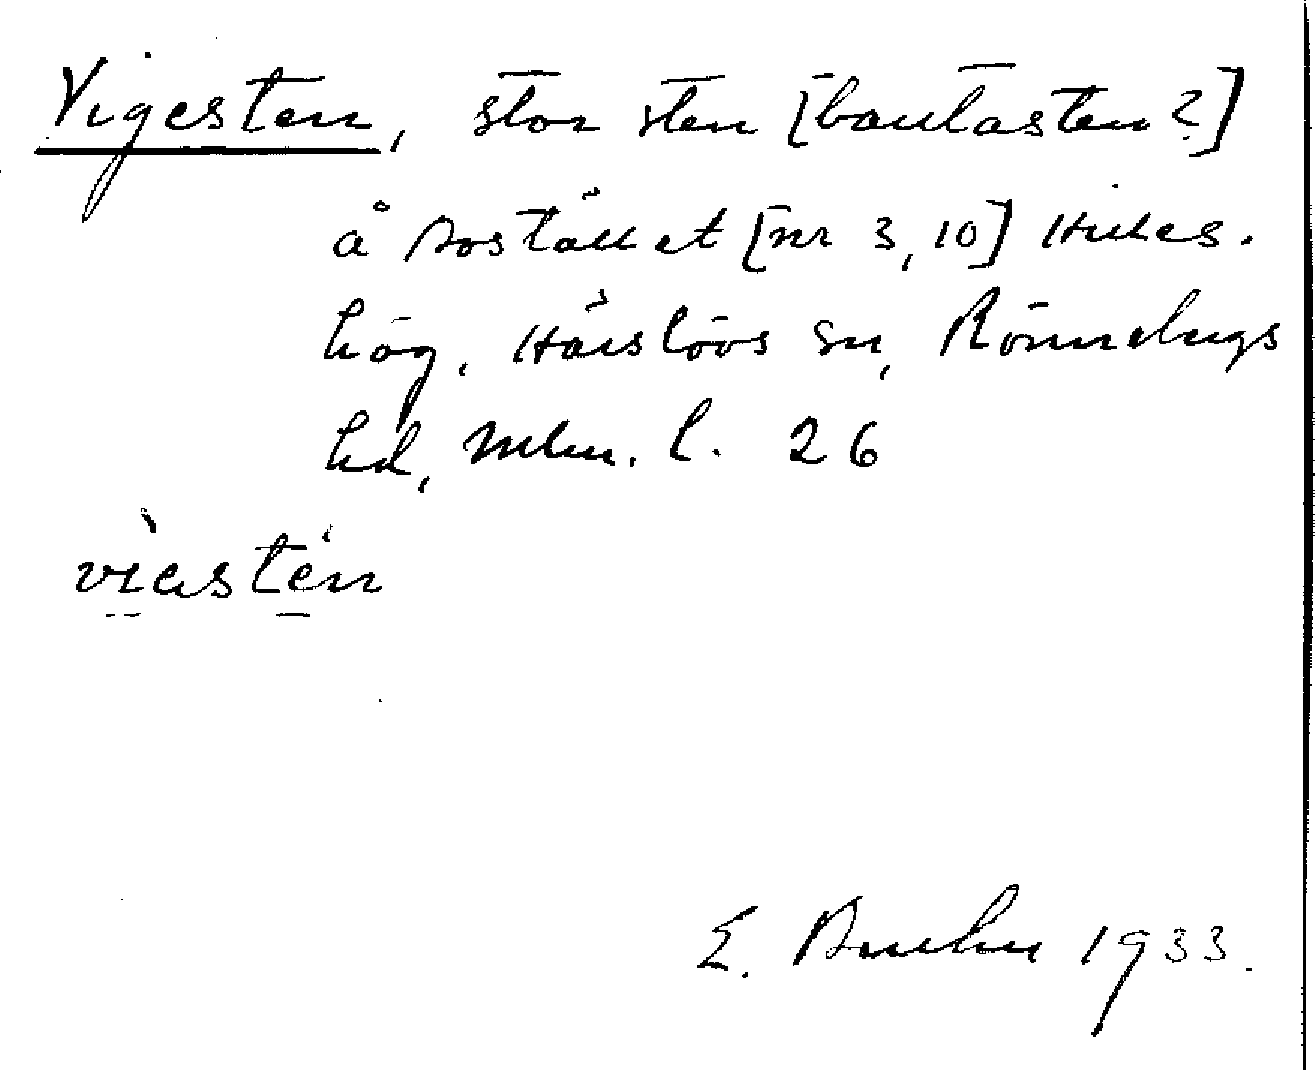 Vigesten, stor sten [bautasten?]
å Rostället [nr 3, 10] Hilles-
hög, Härslövs sn, Rönnebergs
hd, Mlm. l. 26
viestén
E. 1933.